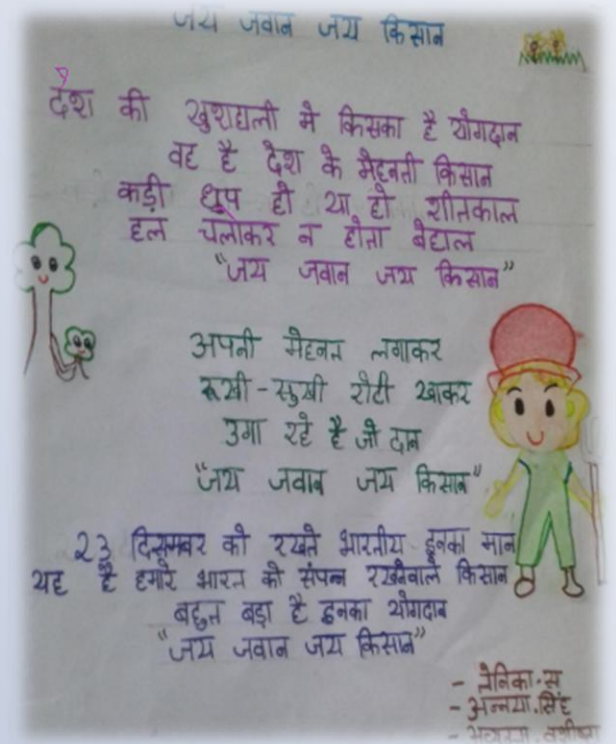 जय जवान जय किसान
देश की खुशहाली मे किसका है योगदान
वह है देश के मेहनती किसान
कड़ी धुप हो या हो शीतकाल
हल चलाकर न होता बेहाल
"जय जवान जय किसान"
अपनी मेहनत लगाकर
रूखी-सुखी रोटी खाकर
उगा रहे है जो दान
"जय जवान जय किसान"
23 दिसम्बर को रखते भारतीय इनका मान
यह है हमारे भारत को संपन्न रखनेवाले किसान
बहुत बड़ा है इनका योगदान
"जय जवान जय किसान"
- अनन्या.सिंह